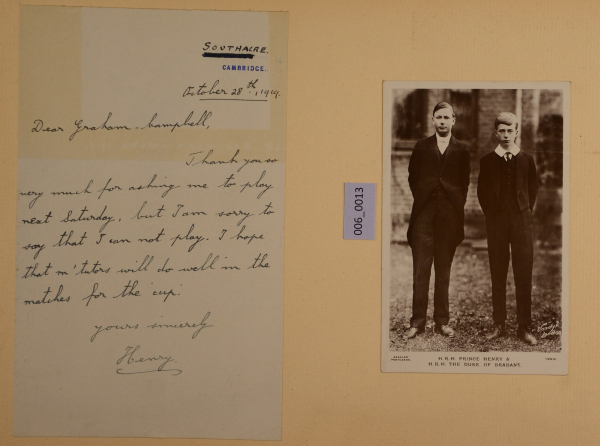 SOUTHACRE.
CAMBRIDGE.
October 28th, 1919.
Dear Graham-Campbell,
Thank you so
very much for asking me to play
next Saturday, but I am sorry to
say that I can not play. I hope
that m' tutors will do well in the
matches for the 'cup'.
yours sincerely
Henry.
006_0013
H.R.H. PRINCE HENRY &
H.R.H. THE DUKE OF BRABANT.